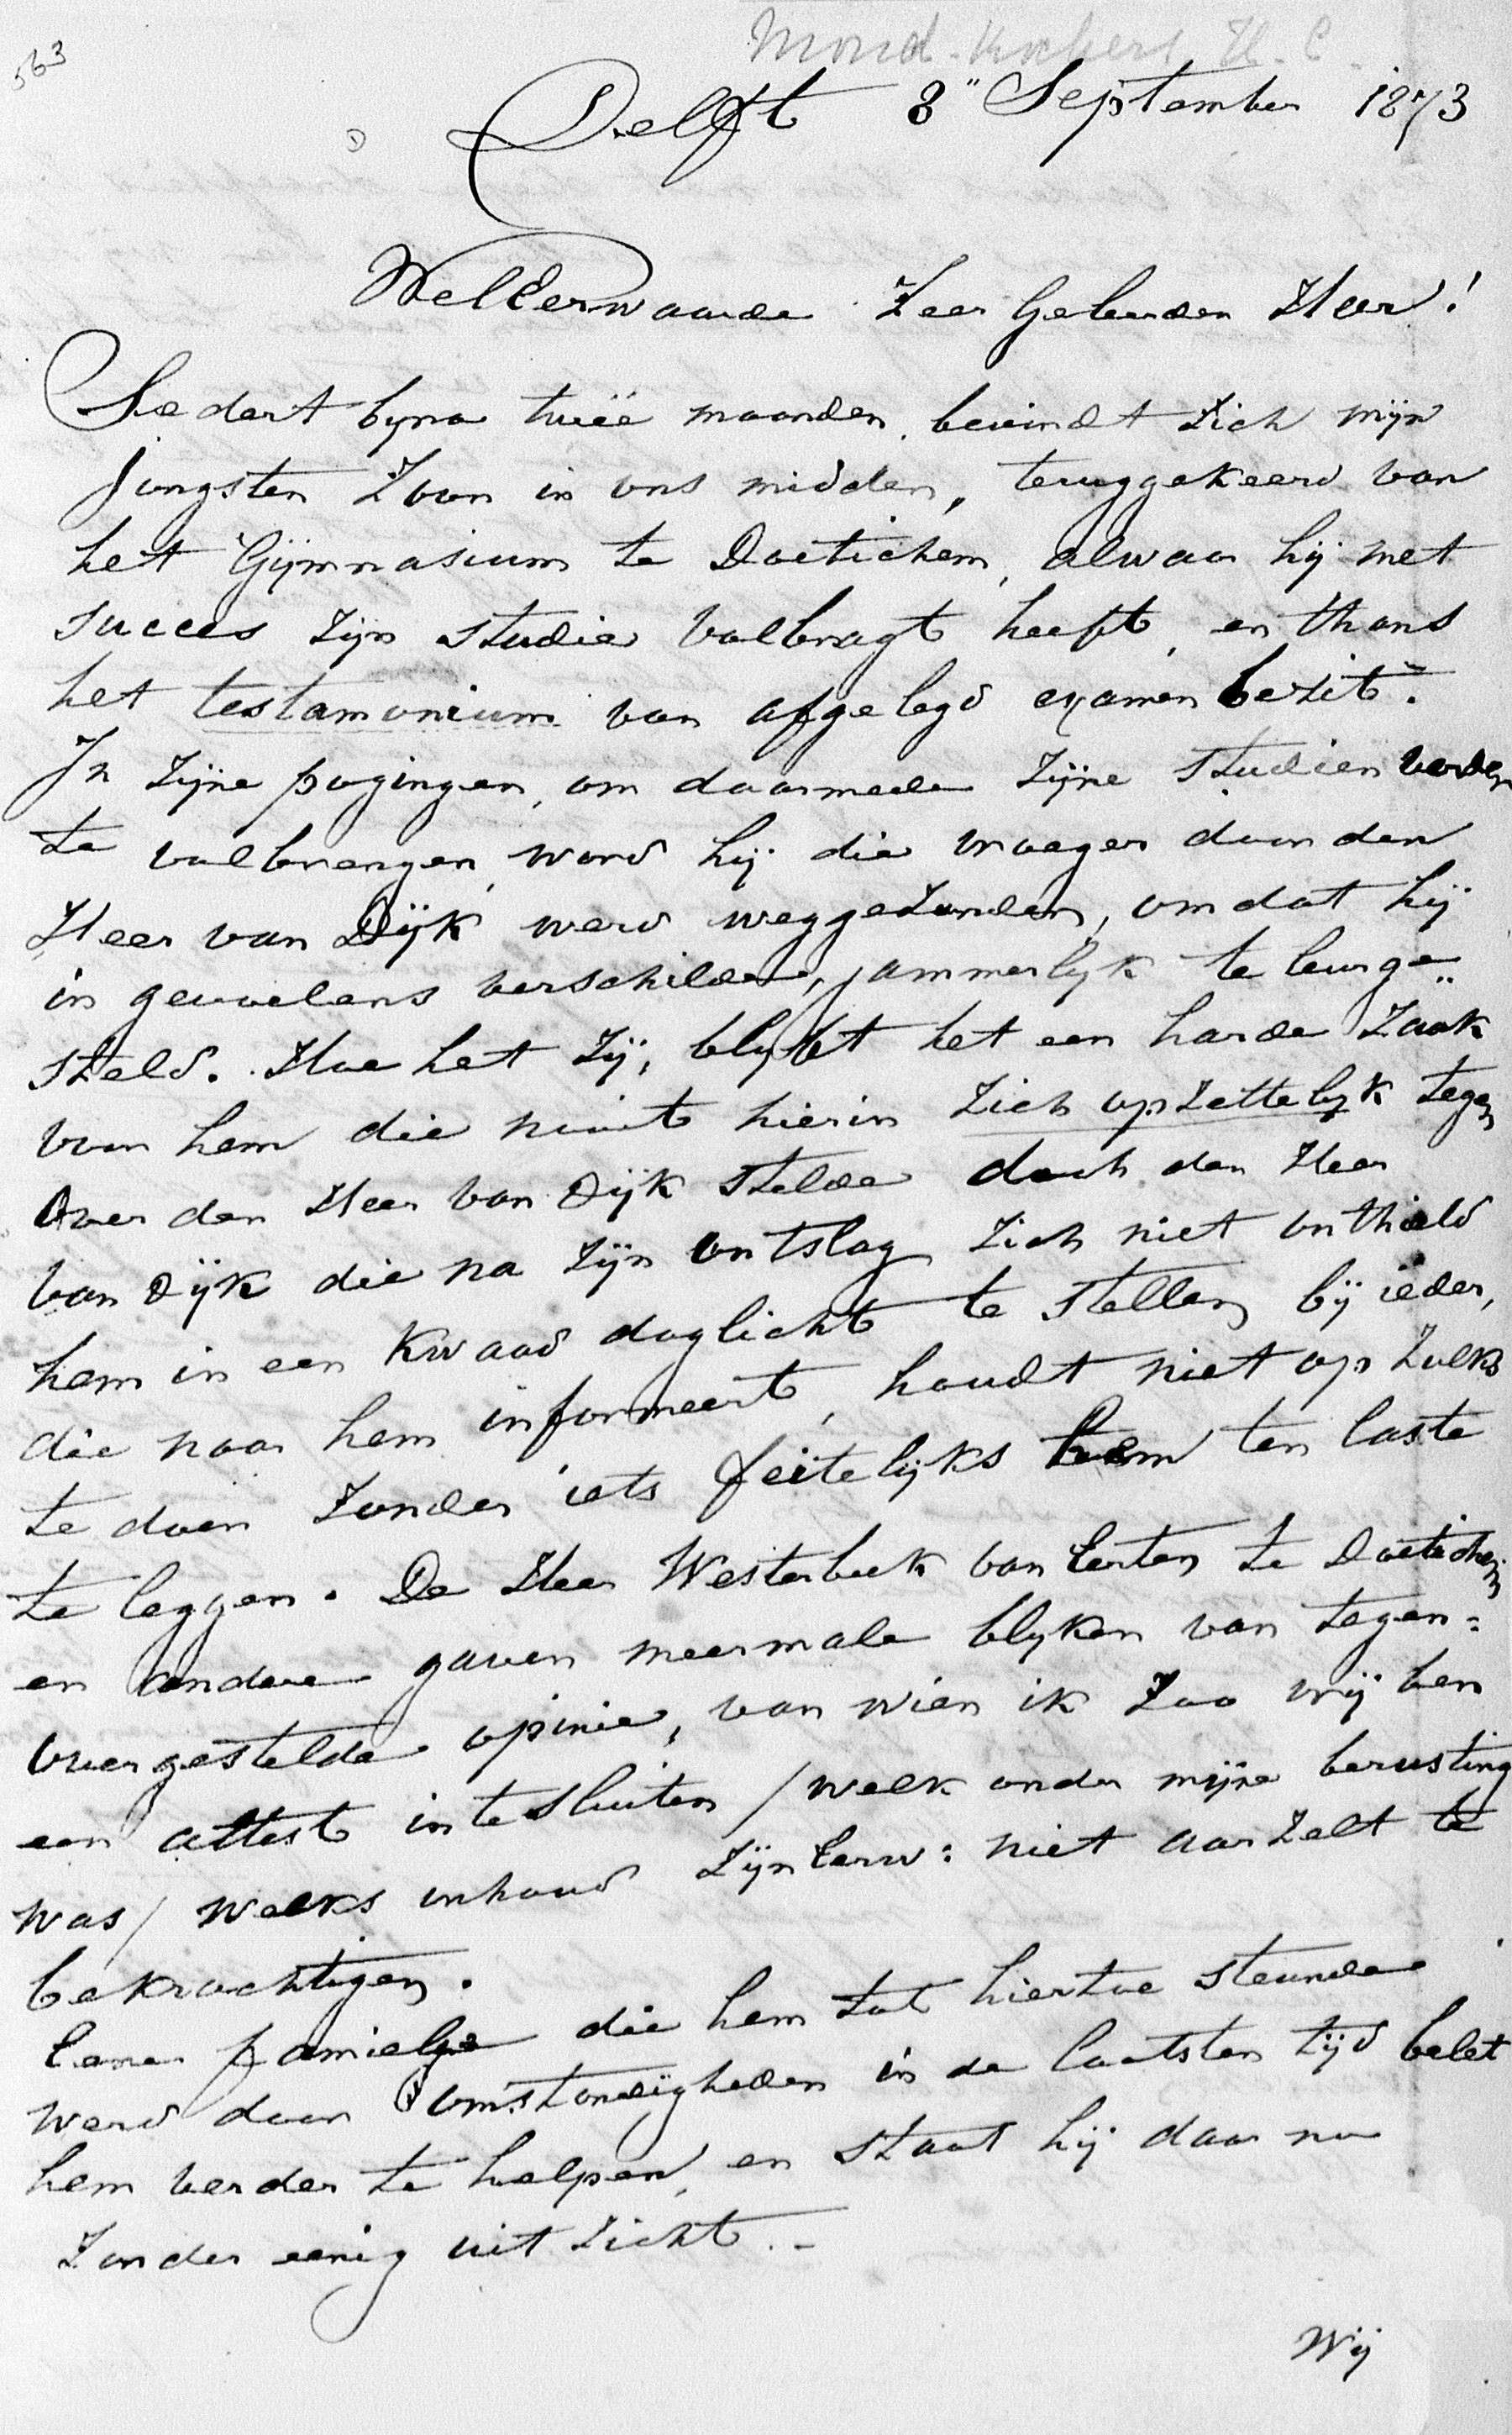 563
Delft 8" September 1873
WelEerwaarde Zeer Geleerden Heer!
Sedert byna tweë maanden bevindt zich mijn
jongsten Zoon in ons midden, teruggekeerd van
het Gijmnasium te Doetichem, alwaar hij met
succes zijn studie volbragt heeft, en thans
het testamonium van afgelegd examen bezit.
In zijne pogingen, om daarmede zijne studien verder
te volbrengen, word hij die vroeger door den
Heer van Dijk werd weggezonden, omdat hij
in gevoelens verschilde, jammerlyk te leurge„
steld. Hoe het zij, blyft het een harde zaak
voor hem die nooit hierin zich opzettelyk tegen
over den Heer van Dijk stelde doch den Heer
van Dijk die na zijn ontslag zich niet onthield
hem in een kwaad daglicht te stellen bij ieder,
die naar hem informeert, houdt niet op zulks
te doen zonder iets feitelijks hem ten laste
te leggen. De Heer Westerbeek van Eerten te Doetichem
en andere gaven meermale blyken van tegen=
overgestelde opinie, van wien ik zoo vrij ben
een attest in te sluiten / welk onder mijne berusting
was / welks inhoud zijn Eerw: niet aarzelt te
bekrachtigen.
Eene famielje die hem tot hiertoe steunde
werd door omstandigheden in de laatsten tijd belet
hem verder te helpen, en staat hij daar nu
zonder eenig uitzicht.-
Wij